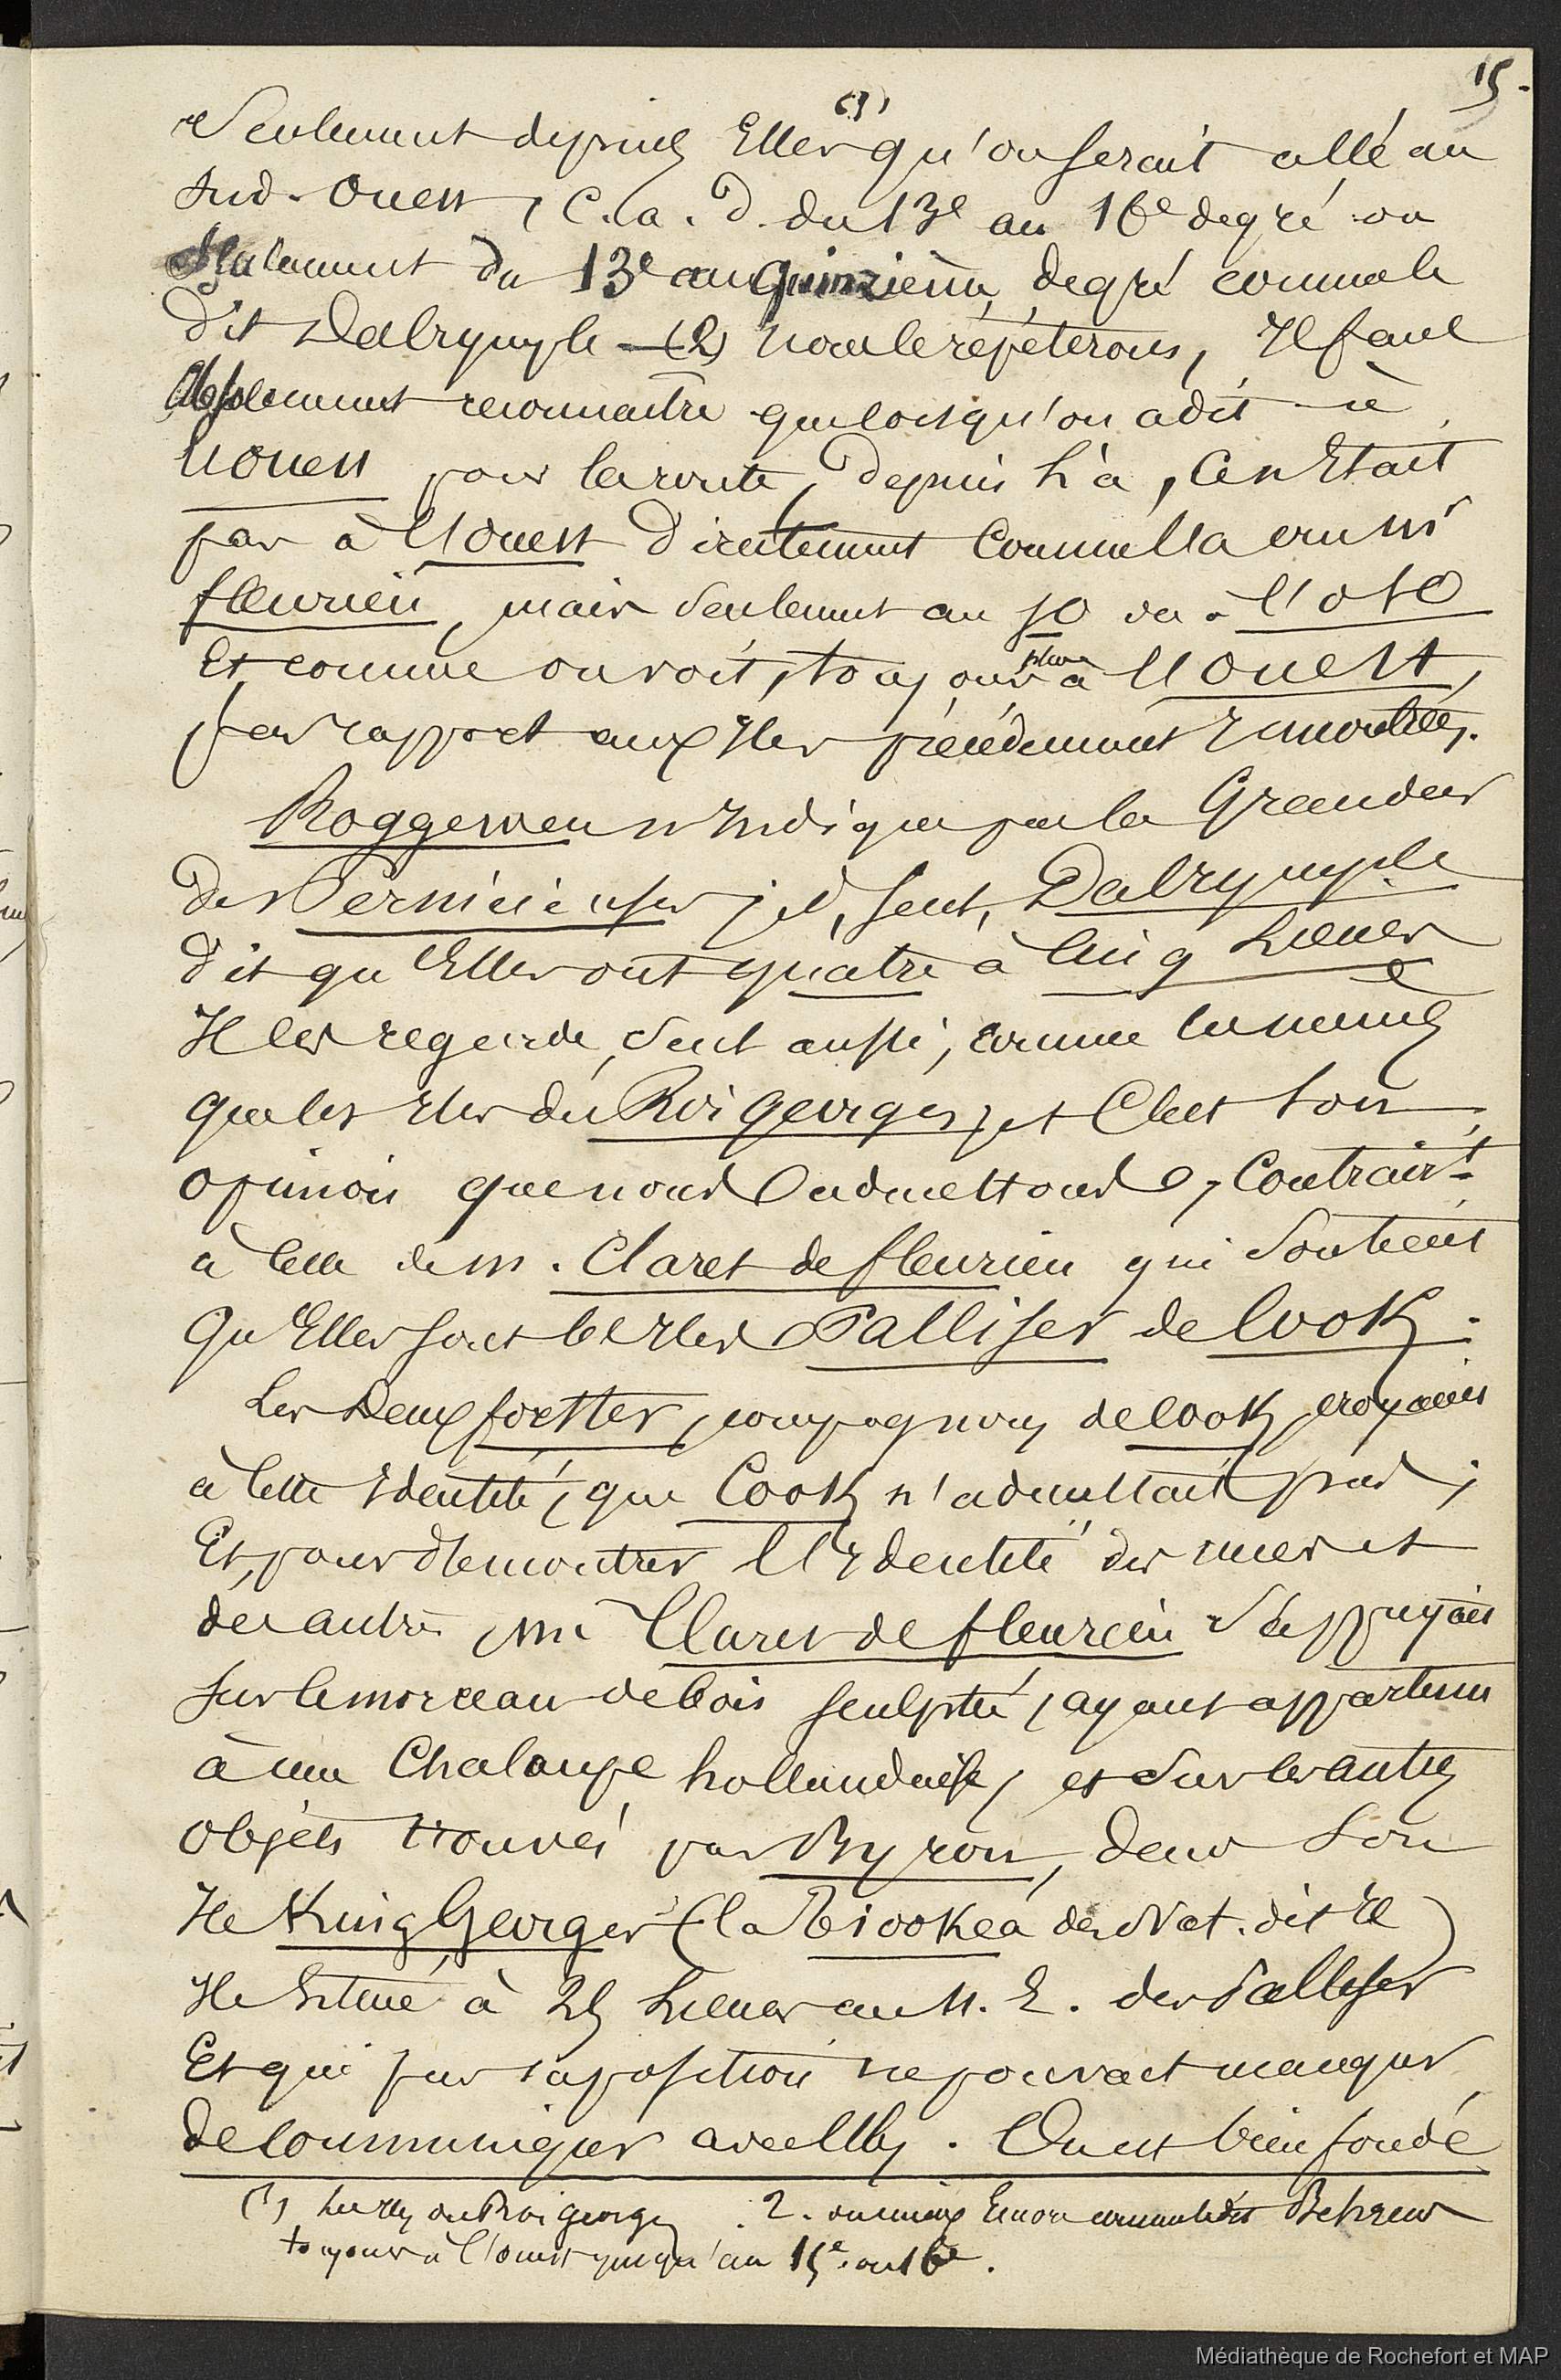 15.
Seulement depuis Elles (1) qu'on serait allé au
Sud-Ouest, C. a. d. du 13e au 16e degré ou
Seulement du 13e au quinzième degré comme le
dit Dalrymple (2) nous le répéterons, Il faut
Absolument reconnaitre que lorsqu'on a dit à
l'Ouest pour la route, depuis là, Ce n'Etait
pas à l'Ouest directement Comme l'a cru Mr
fleurieu, mais seulement au SO ou à l'OSO
Et comme on voit, toujours plus à l'Ouest,
par rapport aux Iles précédemment rencontrées.
Roggeween n'Indique pas la Grandeur
des Pernicieuses; et, seul, Dalrymple
dit qu'Elles ont quatre à Cinq Lieues
Il les regarde, seul aussi, comme les mêmes
que les Iles du Roi georges, et C'est son
opinion que nous admettons, Contrairt
à Celle de M. Claret de fleurieu qui Soutient
Qu'Elles sont les Iles Palliser de Cook.
Les Deux forster, compagnons de Cook, croyaient
à Cette Identité, que Cook n'admettait pas;
Et, pour démontrer l'Identité des unes et
des autres Mr Claret de fleurieu s'appuyait
sur le morceau de bois sculpté, ayant appartenu
à une Chaloupe hollandaise, et sur les autres
objets trouvés par Byron, dans Son
Ile King Georges (la Tiookea des Nat. dit il)
Ile située à 25 Lieues au N. E. des Palliser
Et qui par sa position ne pouvait manquer
de communiquer avec Elles. On est bien fondé
(1) Les Iles du Roi georges. 2. ou mieux Encore comme le dit Behrens
toujours à l'ouest jusqu'au 15e ou 16e.
Médiathèque de Rochefort et MAP